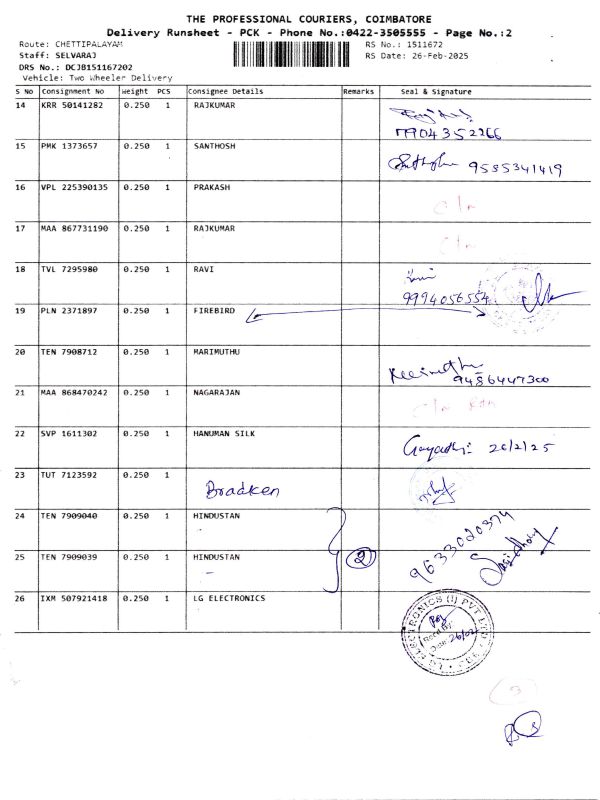 THE PROFESSIONAL COURIERS, COIMBATORE
Delivery Runsheet - PCK - Phone No.:0422-3505555 - Page No.:2
Route: CHETTIPALAYAM RS No.: 1511672
Staff: SELVARAJ RS Date: 26-Feb-2025
DRS No.: DCJB151167202
Vehicle: Two Wheeler Delivery
S No Consignment No Weight PCS Consignee Details Remarks Seal & Signature
14 KRR 50141282 0.250 1 RAJKUMAR
7904352266
15 PMK 1373657 0.250 1 SANTHOSH
9585341419
16 VPL 225390135 0.250 1 PRAKASH
17 MAA 867731190 0.250 1 RAJKUMAR
18 TVL 7295980 0.250 1 RAVI
9994056554
19 PLN 2371897 0.250 1 FIREBIRD
20 TEN 7908712 0.250 1 MARIMUTHU
9486447300
21 MAA 868470242 0.250 1 NAGARAJAN
22 SVP 1611302 0.250 1 HANUMAN SILK
Gayathri 26/2/25
23 TUT 7123592 0.250 1 Bradken
24 TEN 7909040 0.250 1 HINDUSTAN
9633020374
25 TEN 7909039 0.250 1 HINDUSTAN 2
26 IXM 507921418 0.250 1 LG ELECTRONICS